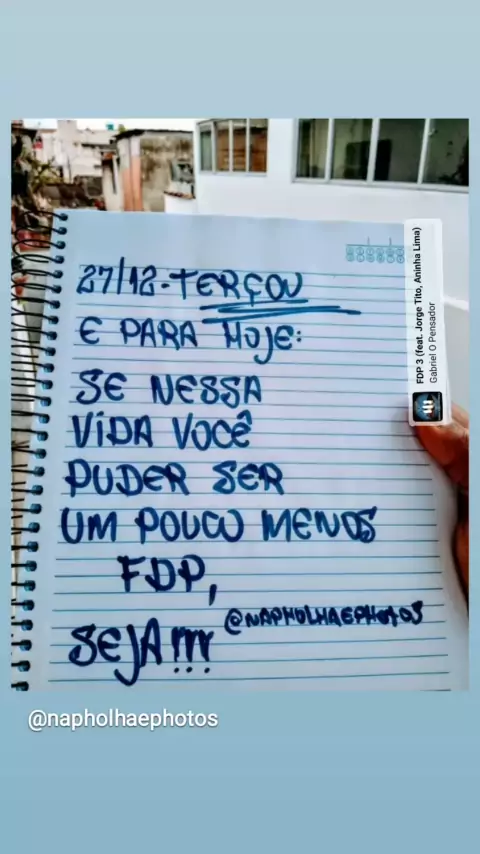 27/12-TERÇOU
E PARA HOJE:
SE NESSA
VIDA VOCÊ
PUDER SER
UM POUCO MENOS
FDP,
SEJA!!!
@NAPHOLHAEPHOTOS
FDP 3 (feat. Jorge Tito, Aninha Lima)
Gabriel O Pensador
@napholhaephotos